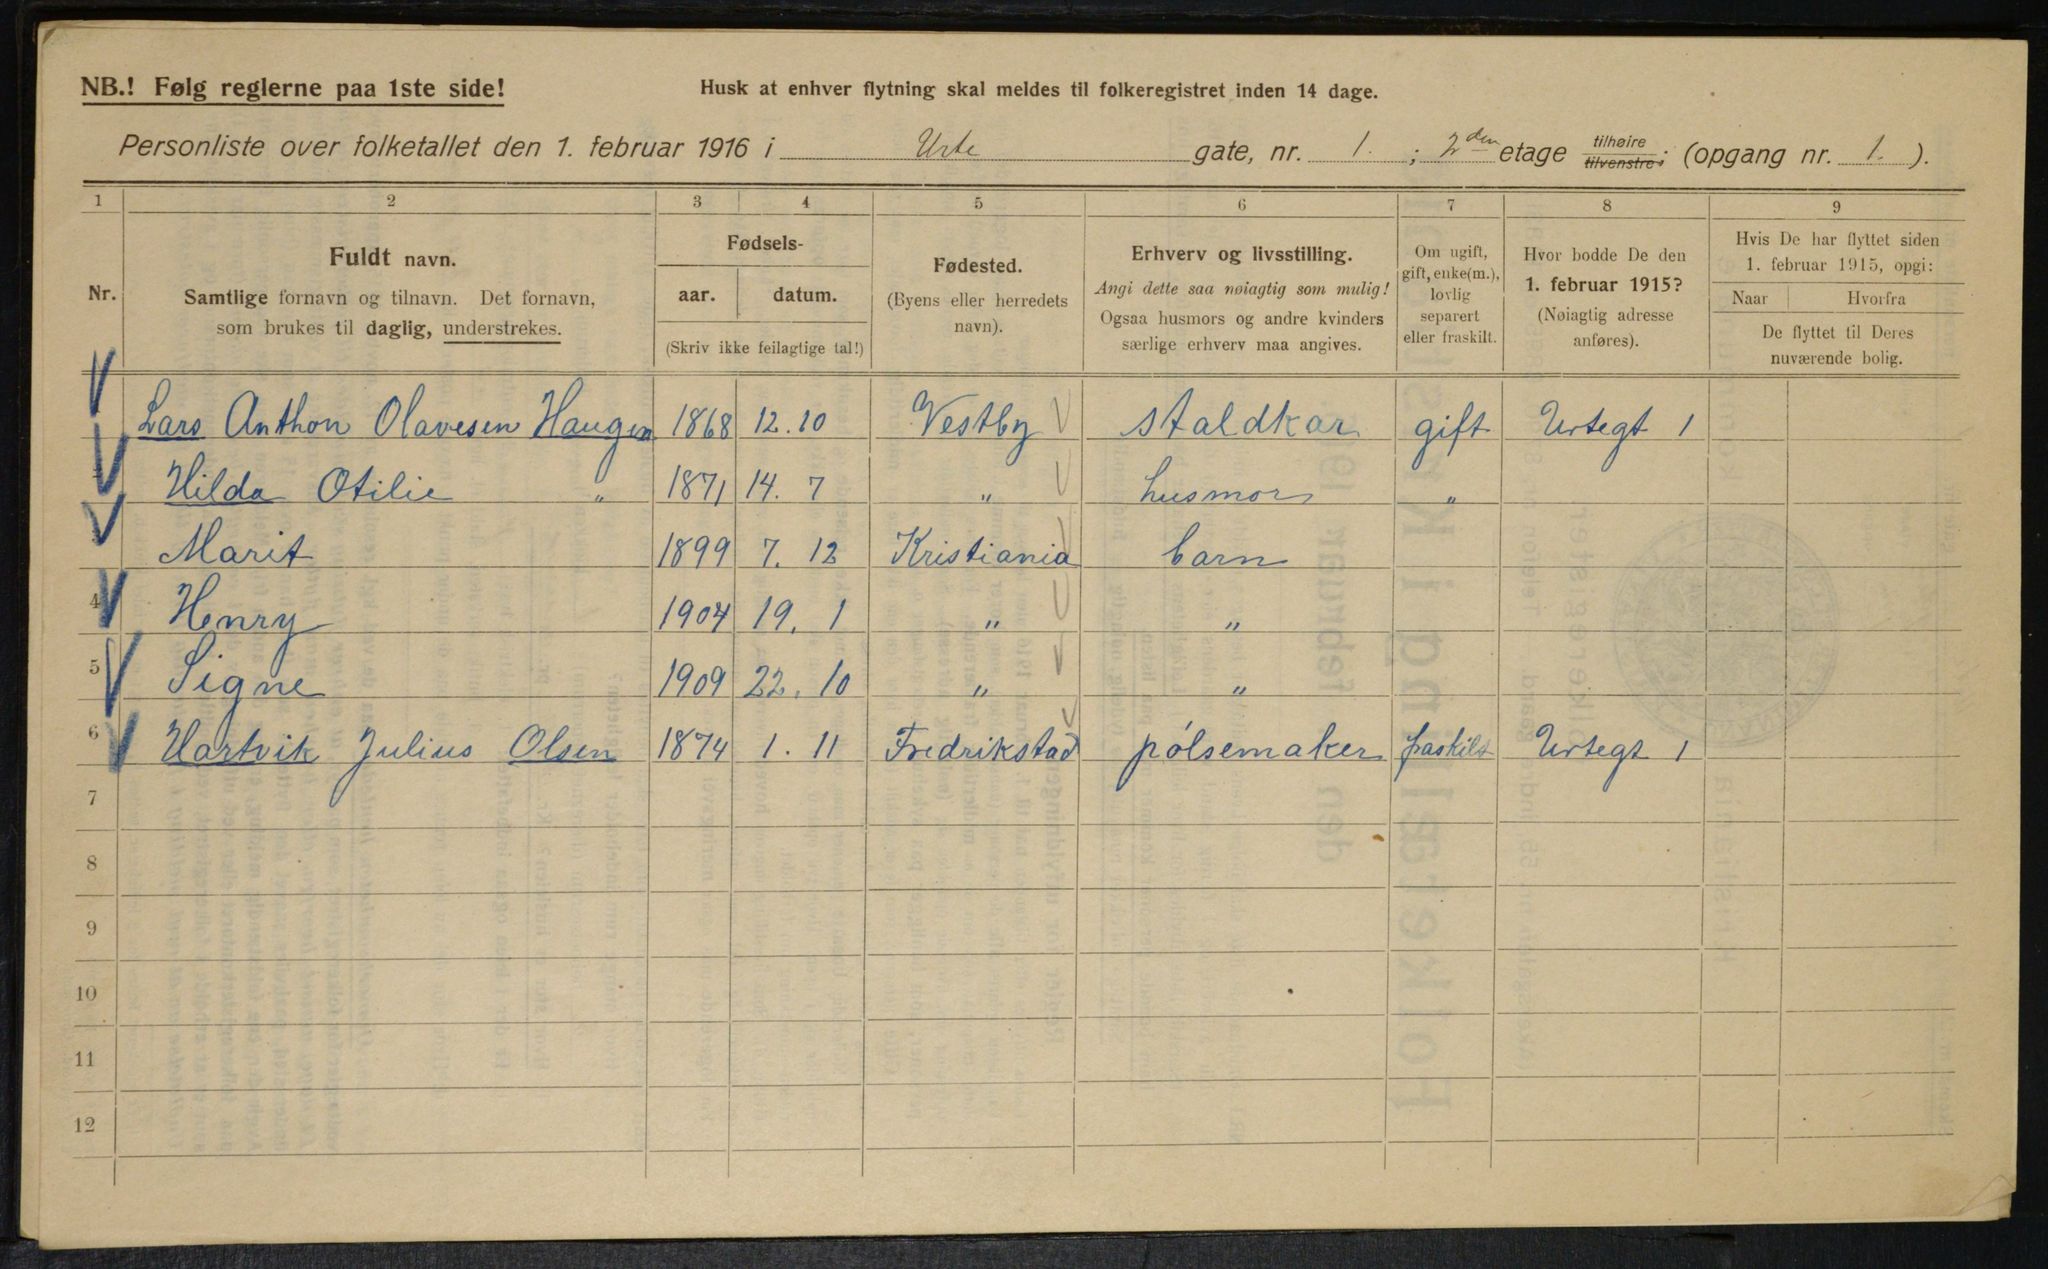 NB.! Følg reglerne paa 1ste side!
Husk at enhver flytning skal meldes til folkeregistret inden 14 dage.
Personliste over folketallet den 1. februar 1916 i Urte gate, nr. 1. ; 2den etage tilhøire tilvenstre; (opgang nr. 1. ).
1 2 3 4 5 6 7 8 9
Nr.
Fuldt navn.
Samtlige fornavn og tilnavn. Det fornavn,
som brukes til daglig, understrekes.
Fødsels-
aar. datum.
(Skriv ikke feilagtige tal!)
Fødested.
(Byens eller herredets
navn).
Erhverv og livsstilling.
Angi dette saa nøiagtig som mulig!
Ogsaa husmors og andre kvinders
særlige erhverv maa angives.
Om ugift,
gift, enke(m.),
lovlig
separert
eller fraskilt.
Hvor bodde De den
1. februar 1915?
(Nøiagtig adresse
anføres).
Hvis De har flyttet siden
1. februar 1915, opgi:
Naar Hvorfra
De flyttet til Deres
nuværende bolig.
Lars Anthon Olavesen Haugen 1868 12.10 Vestby staldkar gift Urtegt 1
Hilda Otilie " 1871 14. 7 " husmor "
Marit 1899 7. 12 Kristiania barn
4 Henry 1904 19. 1 " "
5 Signe 1909 22. 10 " "
6 Hartvik Julius Olsen 1874 1. 11 Fredrikstad pølsemaker fraskilt Urtegt 1
7
8
9
10
11
12